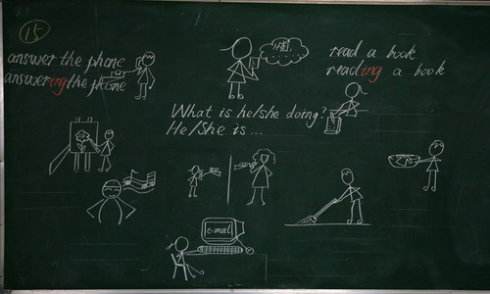 15
answer the phone
answering the phone
read a book
reading a book
What is he/she doing?
He/She is...
e-mail